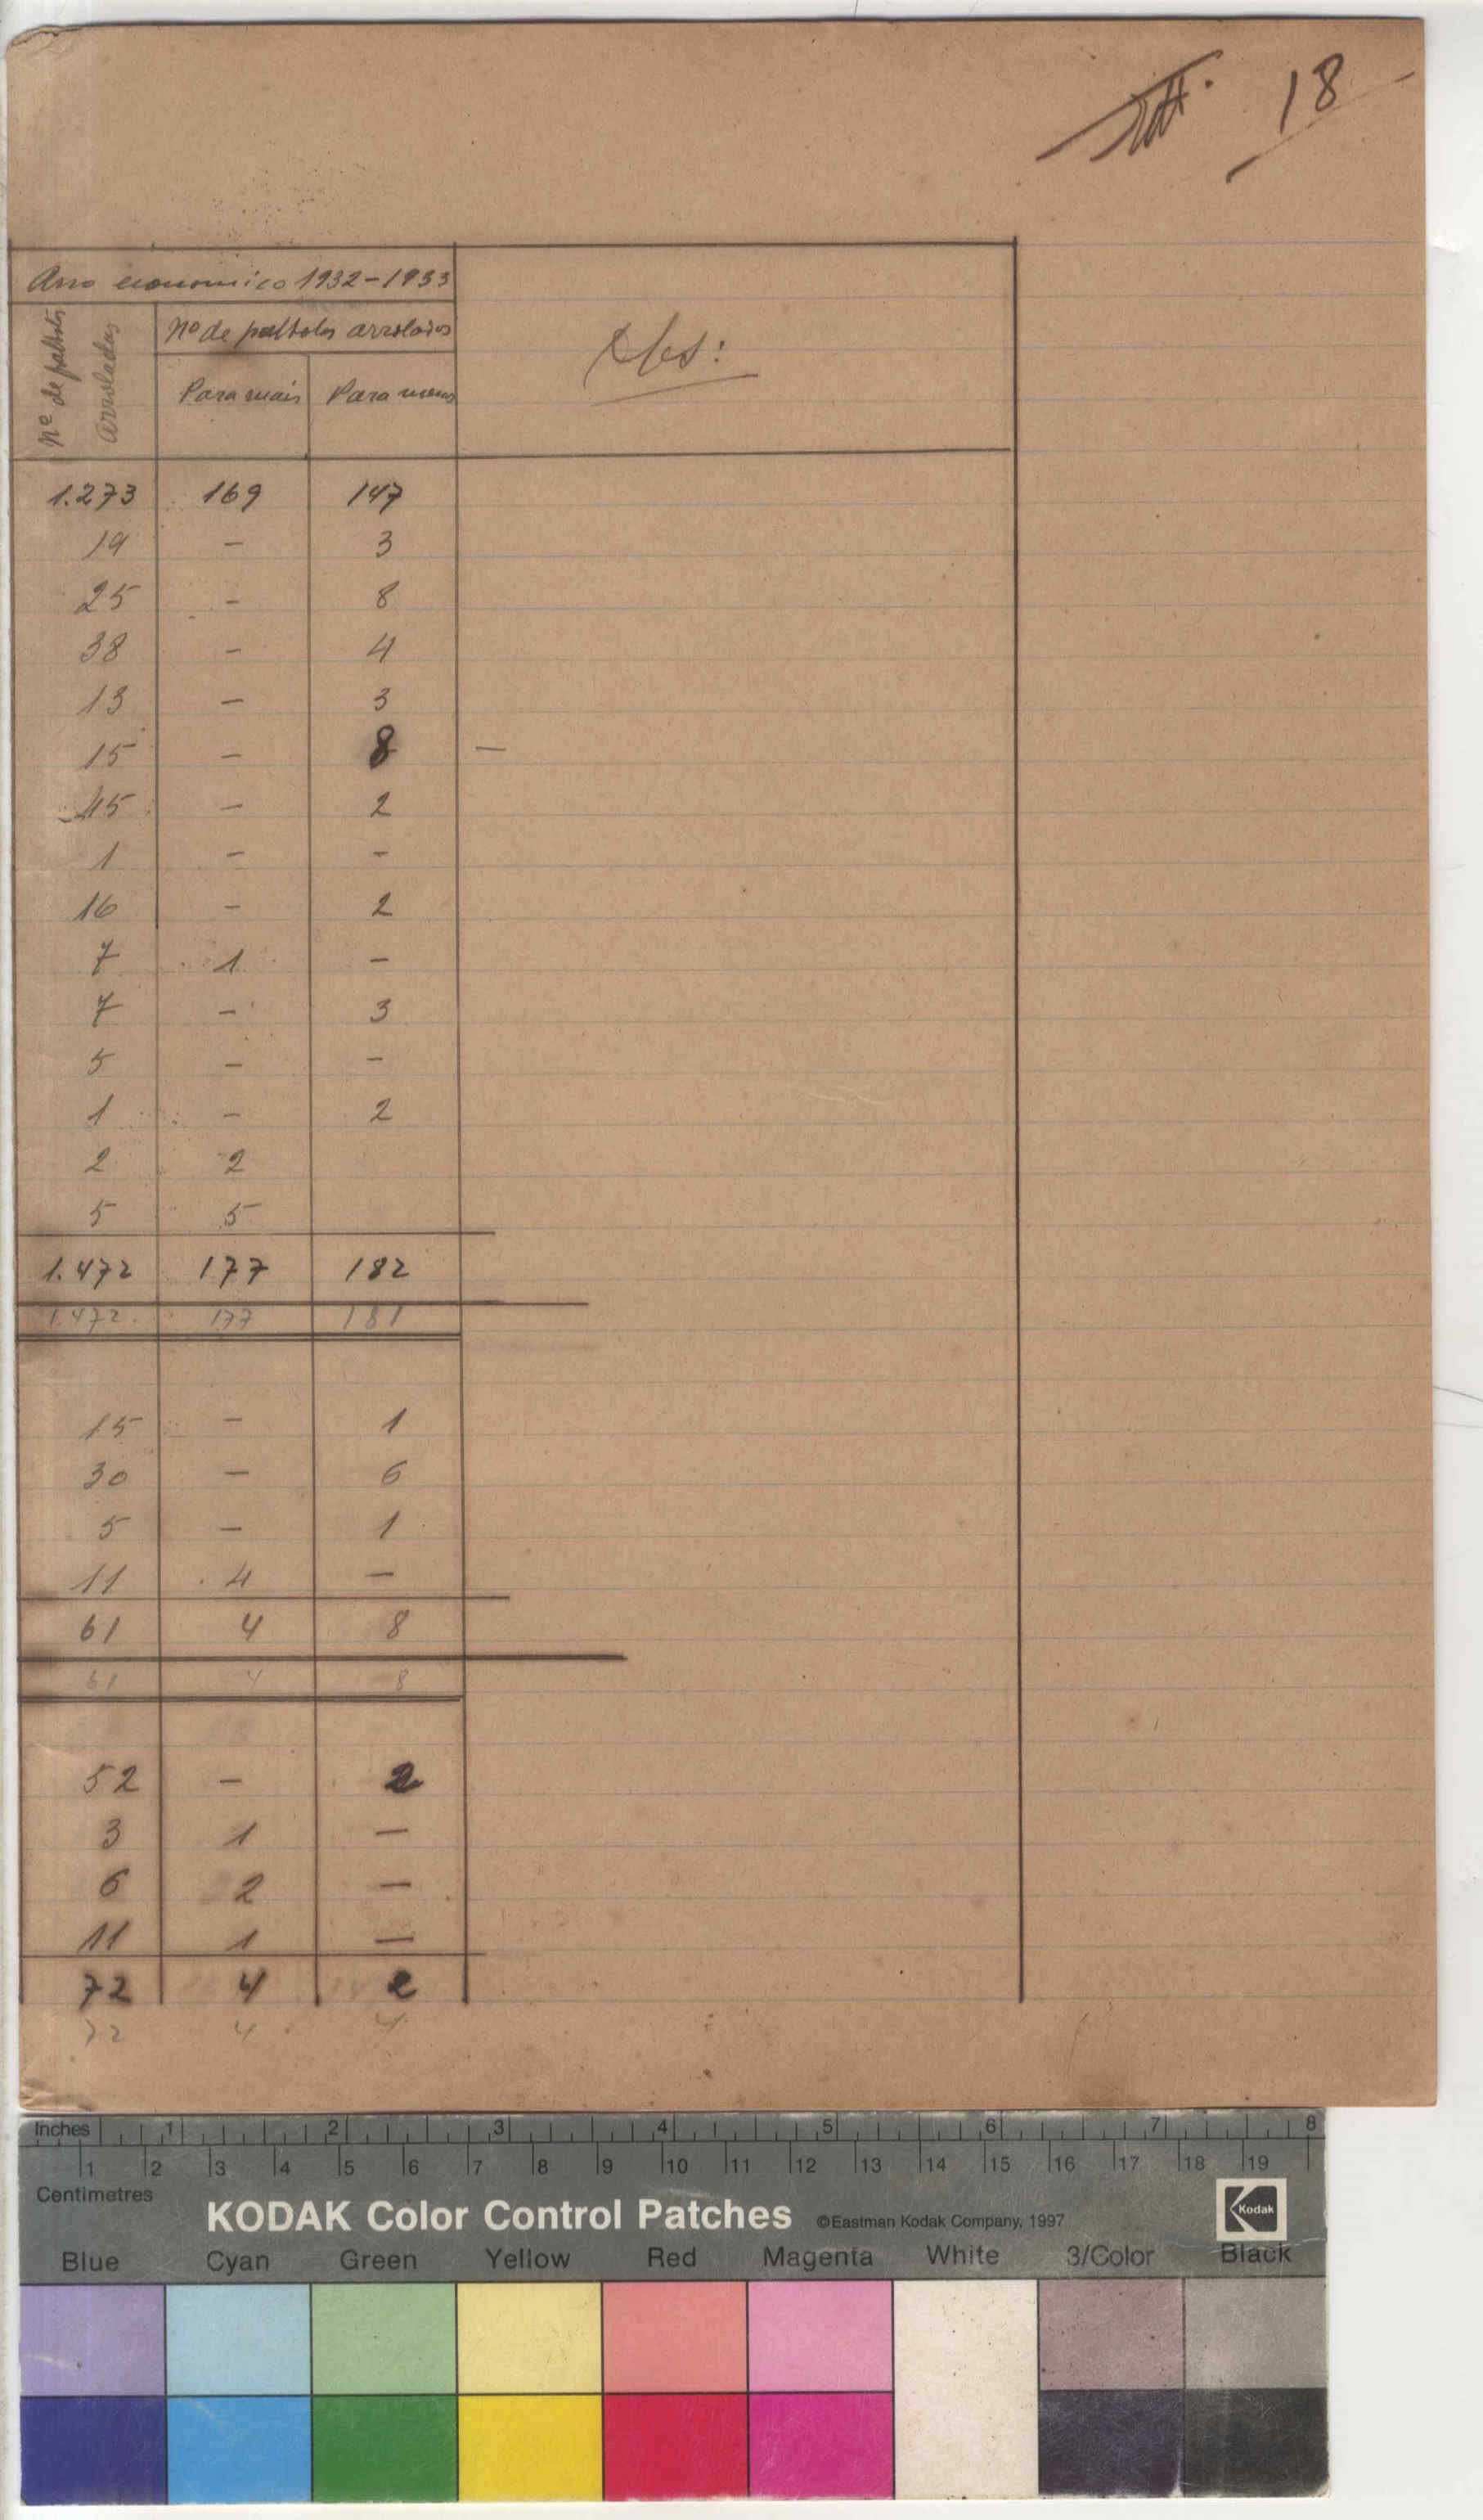 18
Ano economico 1932-1933
Nº de palhotas arroladas
Nº de palhotas arroladas
Para mais Para menos
Obs:
1.273 169 147
19 - 3
25 - 8
38 - 4
13 - 3
15 - 8 -
45 - 2
1 - -
16 - 2
7 1 -
7 - 3
5 - -
1 - 2
2 2
5 5
1.472 177 182
1.472 177 181
15 - 1
30 - 6
5 - 1
11 4 -
61 4 8
61 4 8
52 - 2
3 1 -
6 2 -
11 1 -
72 4 2
72 4 4
Inches 1 2 3 4 5 6 7 8
1 2 3 4 5 6 7 8 9 10 11 12 13 14 15 16 17 18 19
Centimetres
KODAK Color Control Patches ©Eastman Kodak Company, 1997 Kodak
Blue Cyan Green Yellow Red Magenta White 3/Color Black